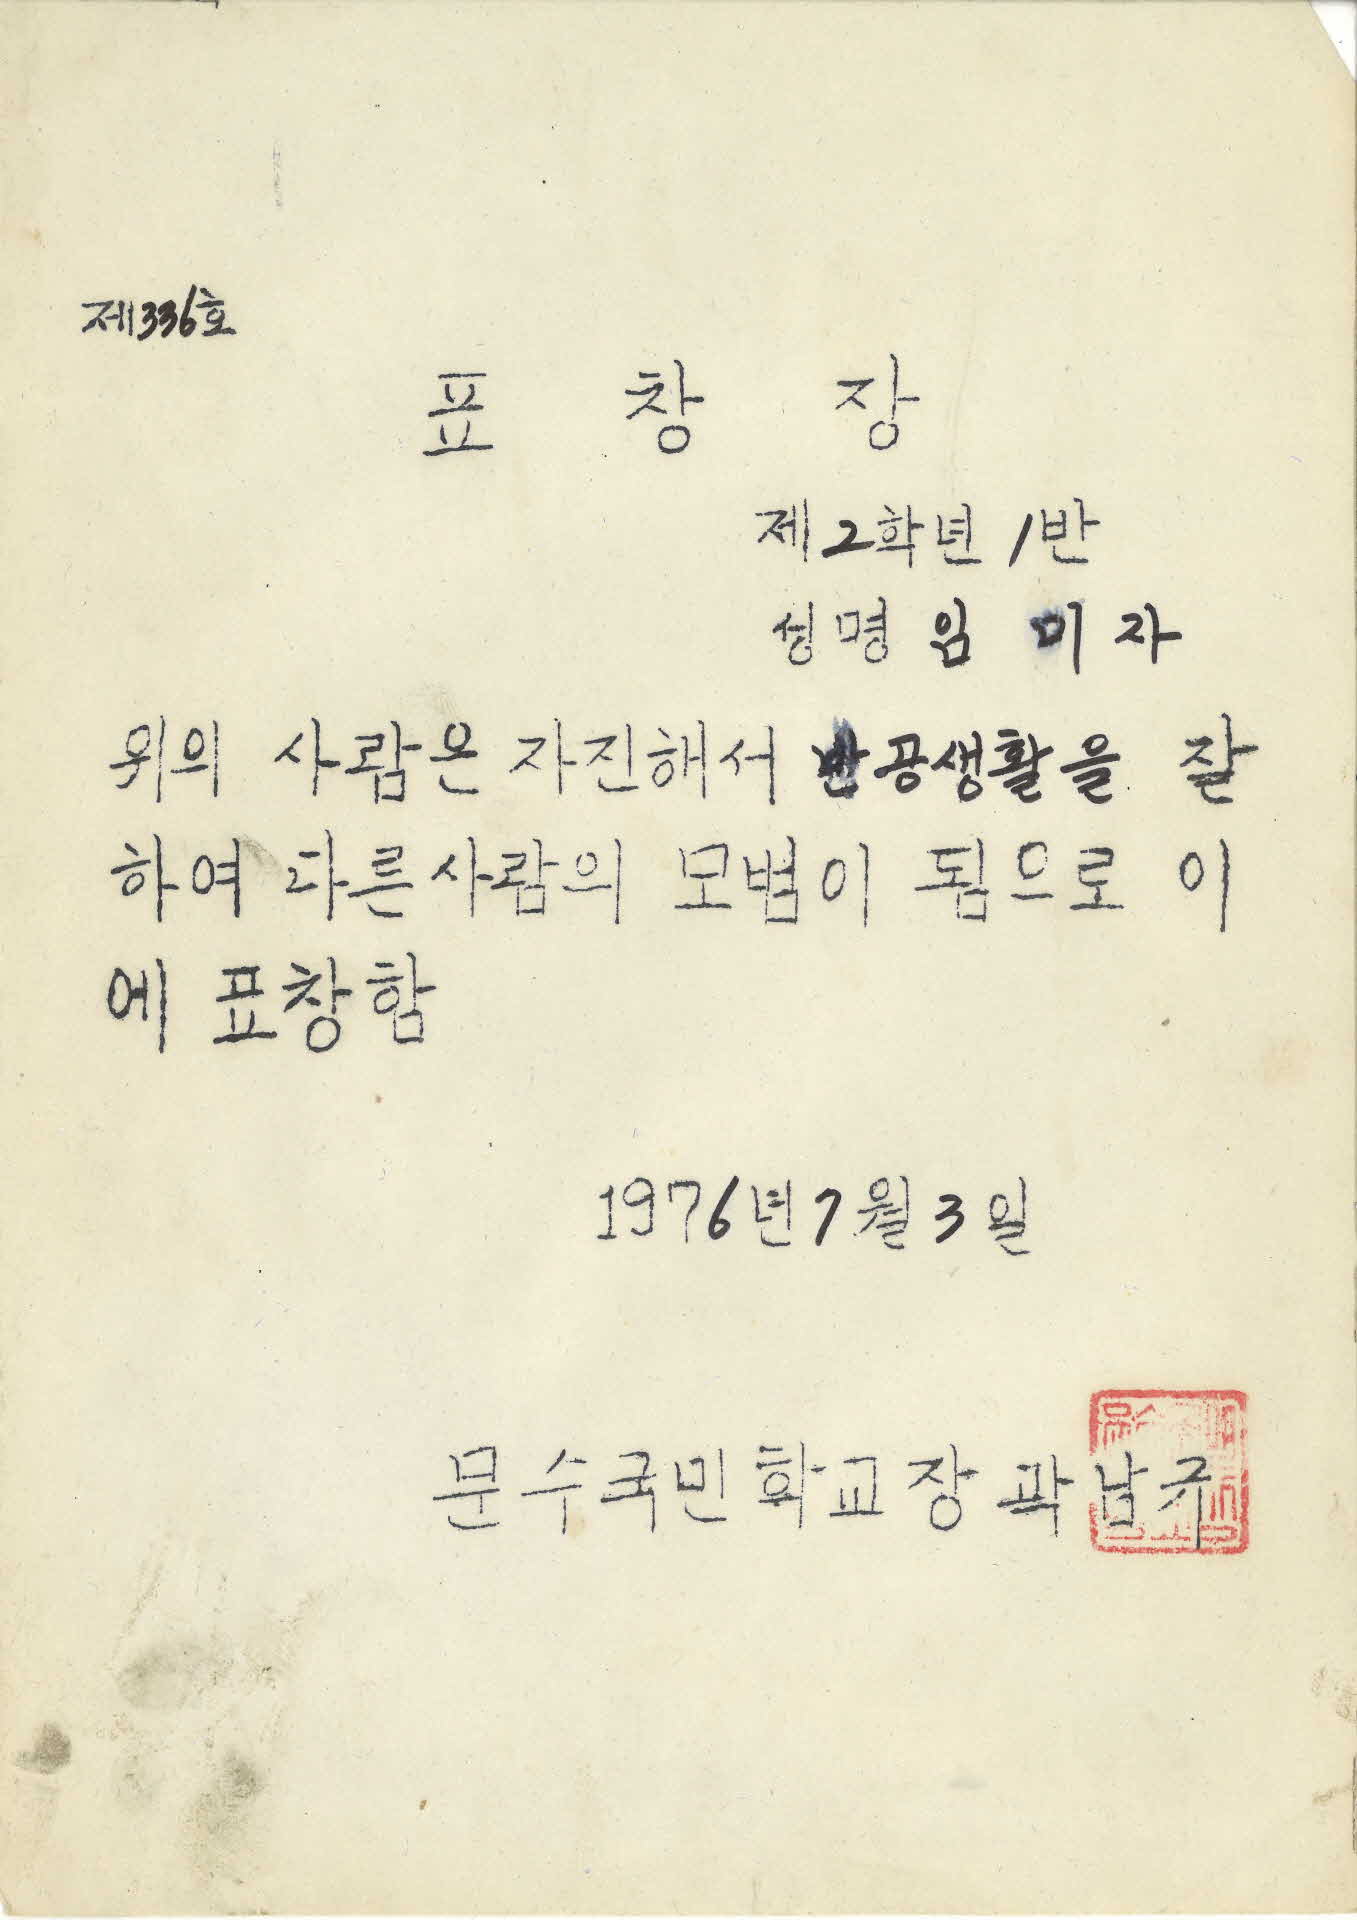 제336호
표 창 장
제2학년 1반
성명 임 미 자
위의 사람은 자진해서 반공생활을 잘
하여 다른사람의 모범이 됨으로 이
에 표창함
1976년 7월 3일
문수국민학교장 곽남규